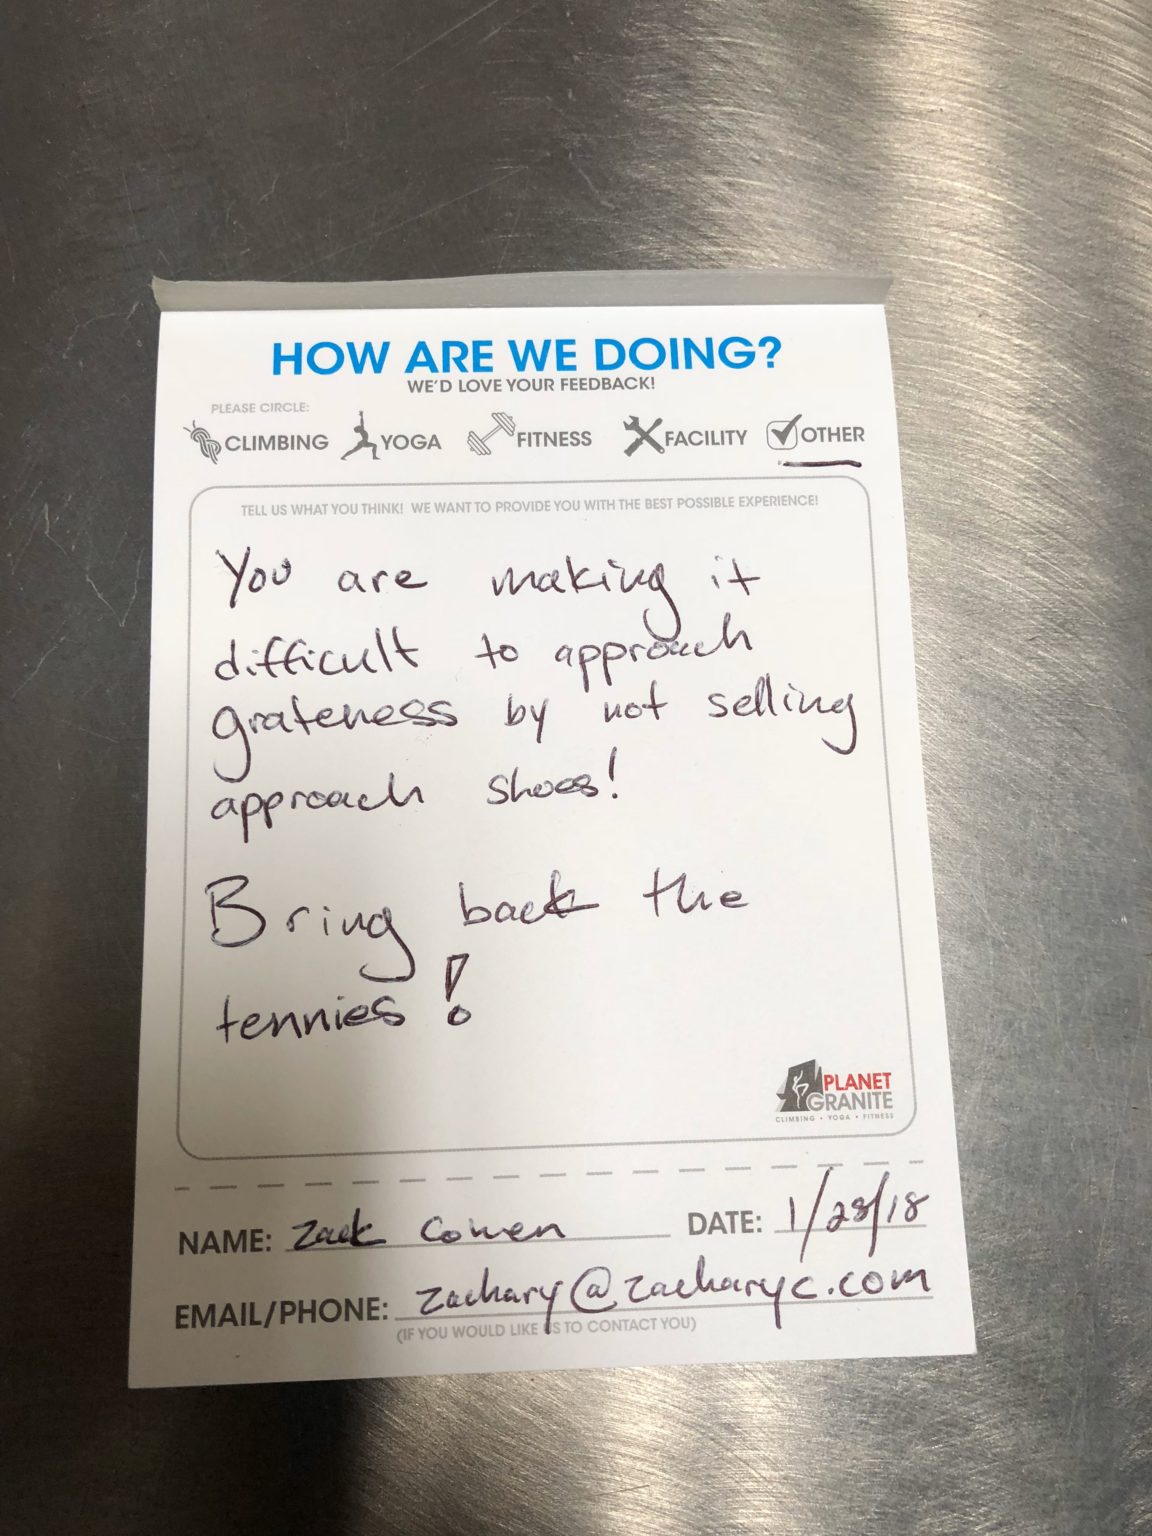 HOW ARE WE DOING?
WE'D LOVE YOUR FEEDBACK!
PLEASE CIRCLE:
CLIMBING YOGA FITNESS FACILITY OTHER
TELL US WHAT YOU THINK! WE WANT TO PROVIDE YOU WITH THE BEST POSSIBLE EXPERIENCE!
You are making it
difficult to approach
grateness by not selling
approach shoes!
Bring back the
tennies!
PLANET
GRANITE
CLIMBING • YOGA • FITNESS
NAME: Zack Cowen DATE: 1/28/18
EMAIL/PHONE: zachary@zacharyc.com
(IF YOU WOULD LIKE US TO CONTACT YOU)